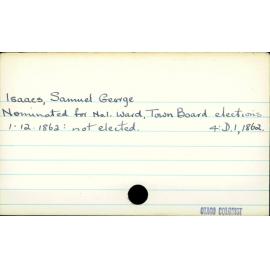 Isaacs, Samuel George
Nominated for No1. Ward, Town Board elections
1.12.1862: not elected. 4:D.1,1862.
OTAGO COLONIST